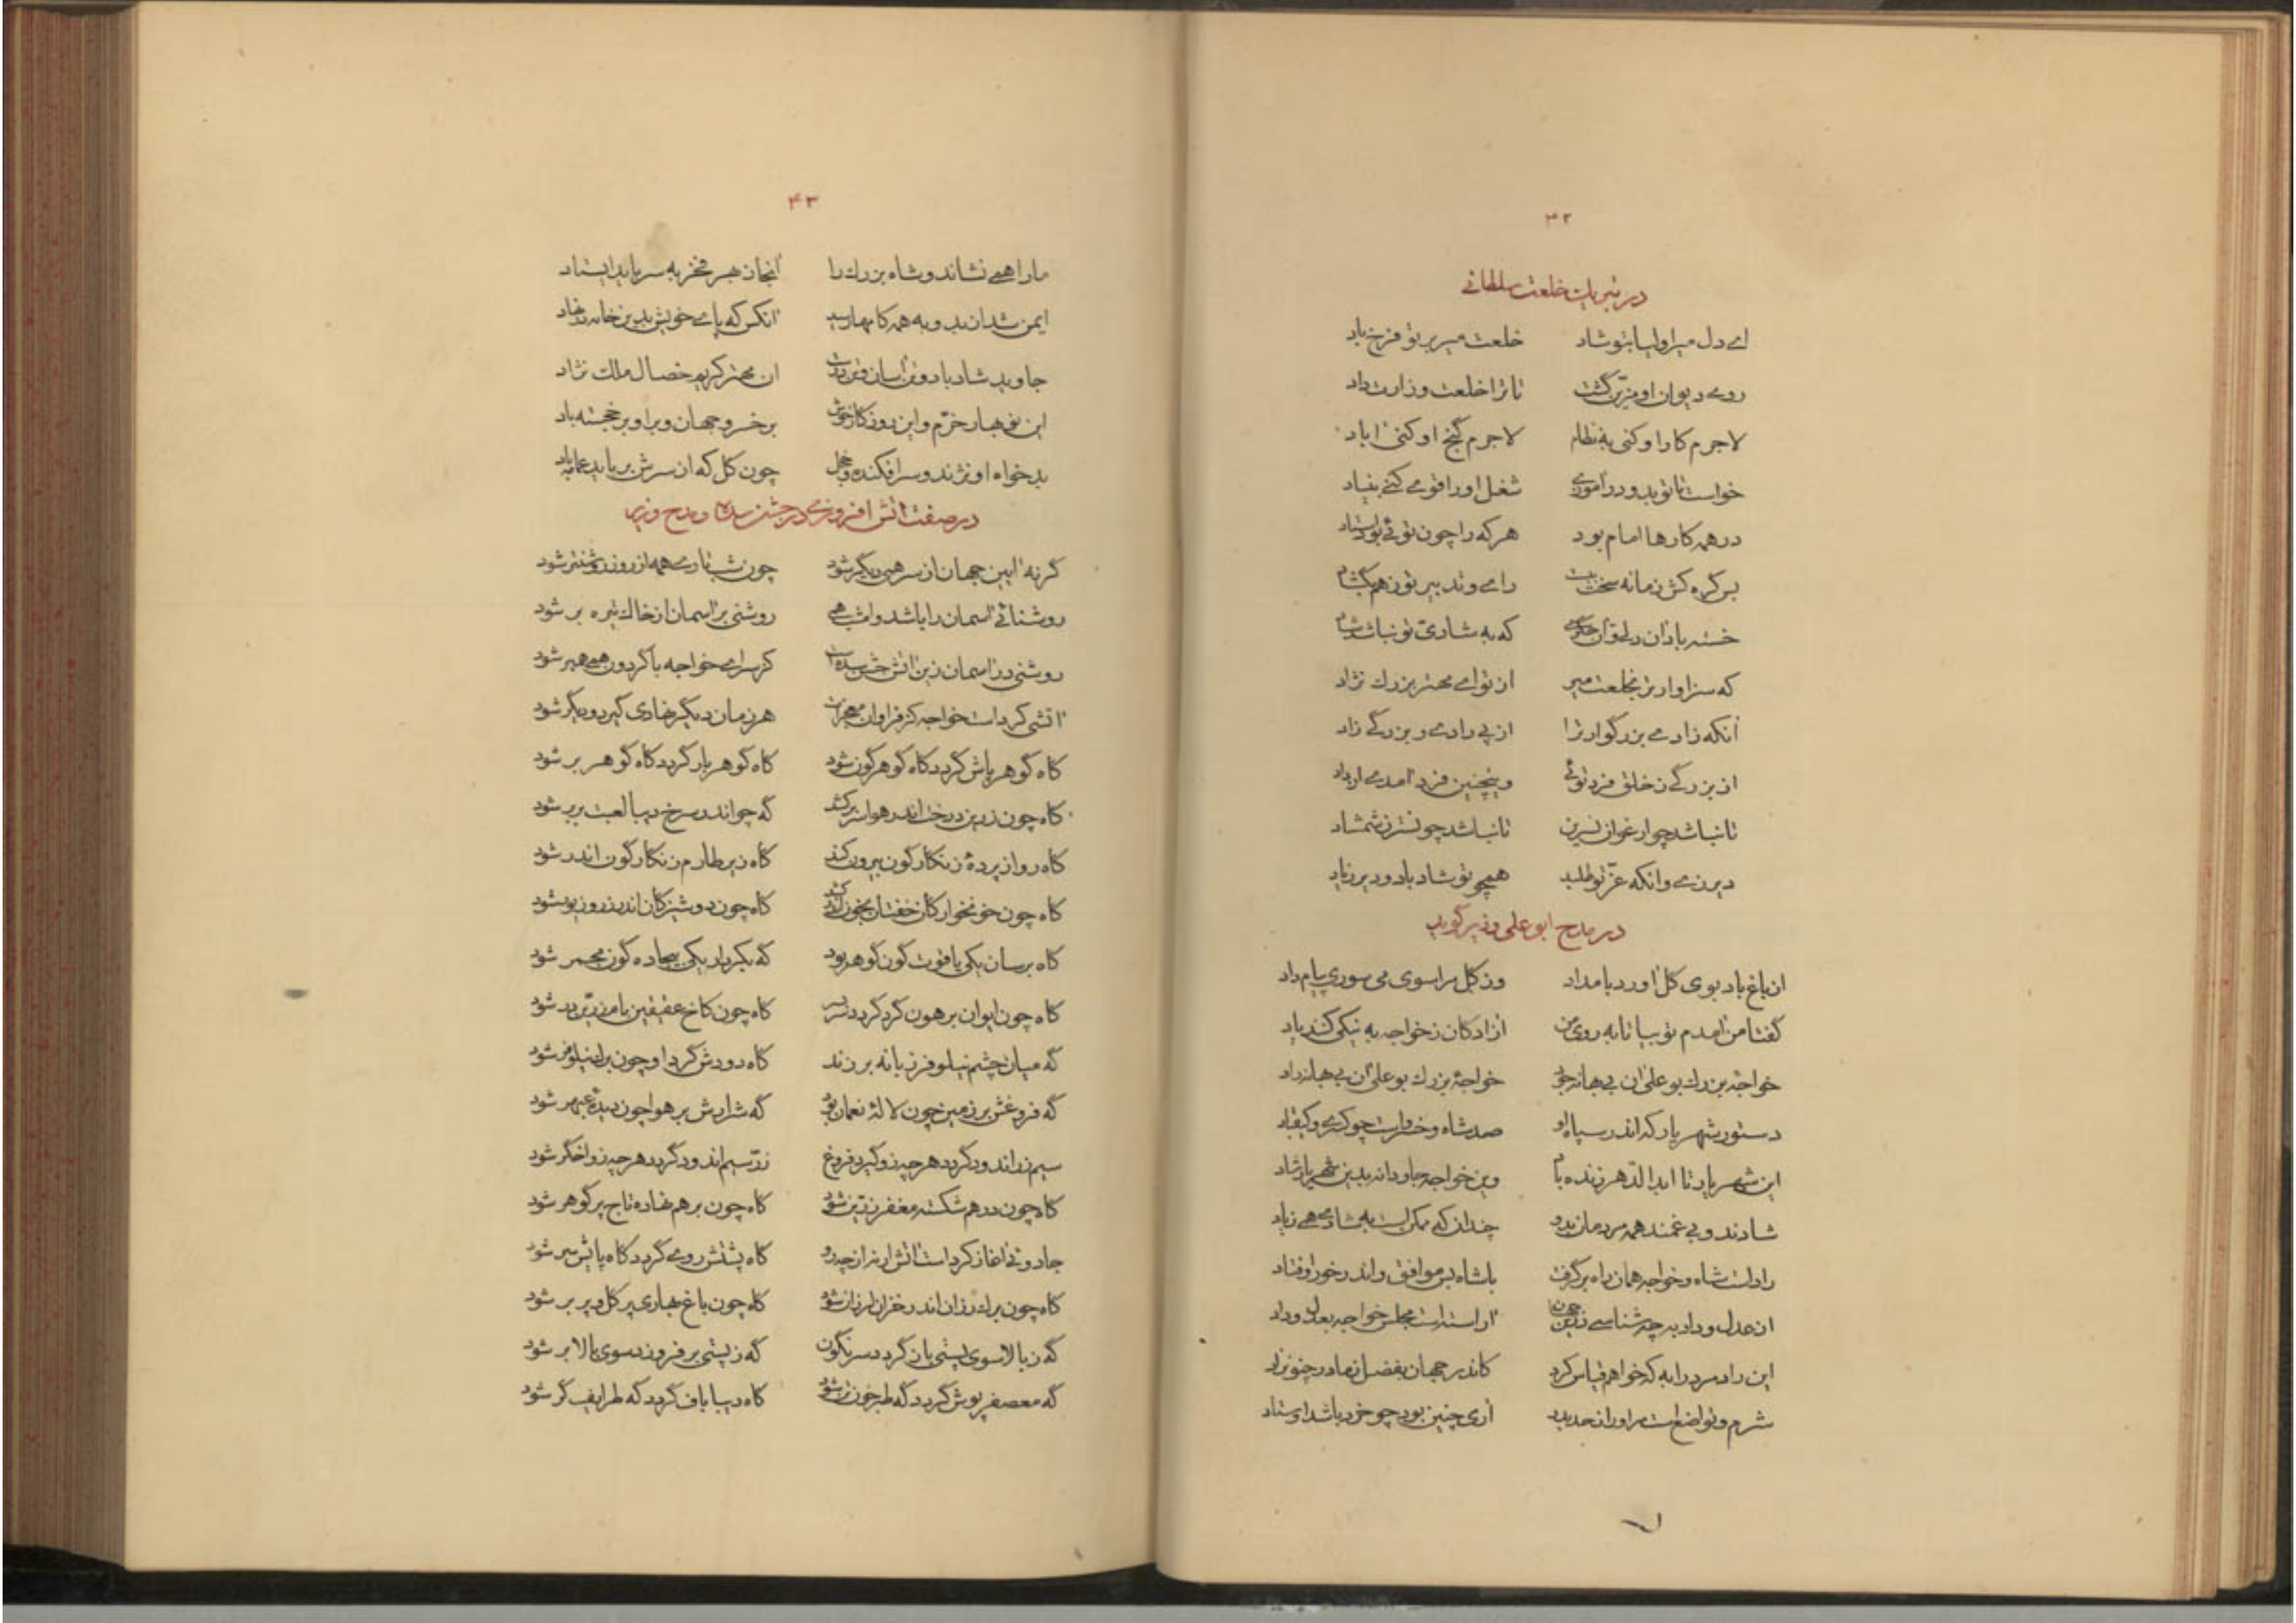 ۴۲
در تبریک خلعت سلطانی
اے دل میر اولیا بتو شاد خلعت میر بر تو فرخ باد
روے دیوان او مزیّن گشت تا ترا خلعت وزارت داد
لاجرم کار او کنی به نظام لاجرم گنج او کنی آباد
خواست تا نو بدو در آموزے شغل او را قومے کنے بنیاد
در همه کارها امام بود هر که را چون توئے بود استاد
بس گره کش زمانه سخت ببست راے و تدبیر تو ز هم بگشاد
خسته باد آن دل و آن جگرے که به شادیّ تو نباشد شاد
که سزاوارتر بخلعت میر از تو اے مهتر بزرك نژاد
آنکه زادے بزرگوار ترا از پی رادے و بزرگے زاد
از بزرگے ز خلق فرد توئے وینچنین فرد آمدے ز نژاد
تا نباشد چو ارغوان نسرین تا نباشد چو نسترن شمشاد
دیر زے وانکه عزّ تو طلبد همچو تو شاد باد و دیر زیاد
در مدح ابو علی وزیر گوید
از باغ باد بوی گل آورد بامداد وز گل مرا سوی می سوری پیام داد
گفتا من آمدم تو بیا تا به روی من آزادکان ز خواجه به نیکی کنند یاد
خواجهٔ بزرك بو علی آن بی بهانه جود خواجهٔ بزرك بو علی آن بی بهانه راد
دستور شهریار که اندر سپاه او صد شاه و خسروست چو کسرے و کیقباد
این شهریار تا ابد الدّهر زنده بام وین خواجه جاودانه بدین شهریار شاد
شادند و بی غمند همه مردمان بدو چندان که ممکن است به شادے همے زیاد
رادست شاه و خواجه همان راه برگرفت با شاه بس موافق و اندر خور اوفتاد
از عدل و داد بر چه شناسے زمین چون آراسته است مجلس خواجه بعدل و داد
این راد مرد را به که خواهم قیاس کرد کاندر جهان بفضل ز مادر چنو نزاد
شرم و تواضع است مر او را ز حد بدر آری چنین بود چو خرد باشد اوستاد
۴۳
ما را همے نشاند و شاه بزرك را آنجا ز بهر فخر به سر باید ایستاد
ایمن شد از بد و به همه کامها رسید آنکس که پاے خویش بدین خانه در نهاد
جاوید شاد باد و تن آسان و تن درست آن مهتر کریم خصال ملك نژاد
این نو بهار خرّم و این روزکار خوش بر خسرو جهان و بر او بر خجسته باد
بد خواه او نژند و سر افکنده و خجل چون کل که از سرش برباید عمامه باد
در صفت آتش افروزے در جشن سده و مدح وزیر
کر نه آیین جهان از سر همی دیگر شود چون شب تارے همه از روز روشنتر شود
روشنائے آسمان را باشد و امشب همے روشنی بر آسمان از خاك تیره بر شود
روشنی در آسمان زین آتش جشن سده است کز سراے خواجه با گردون همے همبر شود
آتشی کردست خواجه کز فراوان معجزات هر زمان دیگر نهادی گیرد و دیگر شود
کاه گوهر پاش گردد کاه گوهر گون شود کاه گوهر بار گردد کاه گوهر بر شود
کاه چون زرین درخت اندر هوا سر برکشد که چو اندر سرخ دیبا لعبت بربر شود
کاه رو از پردهٔ زنکار گون بیرون کند کاه زیر طارم زنکار گون اندر شود
کاه چون خونخوارکان خفتان بخون اندر کشد کاه چون دوشیزکان اندر زر و زیور شود
کاه بر سان یکی یاقوت گون گوهر بود که بکردار یکی بیجاده گون مجمر شود
کاه چون ایوان برهون گرد گردد سر بسر کاه چون کاخ عقیقین بام زرّین در شود
که میان چشم نیلوفر زبانه بر زند کاه دودش گرد او چون برك نیلوفر شود
که فروغش بر زمین چون لالهٔ نعمان بود که شرارش بر هوا چون دیدهٔ عبهر شود
سیم زر اندود گردد هر چه زو گیرد فروغ زرّ سیم اندود گردد هر چه زو اخگر شود
کاه چون در هم شکسته مغفر زرّین شود کاه چون بر هم نهاده تاج پر گوهر شود
جادوئے آغاز کردست آتش ار نه از چه رو کاه پشتش روے گردد کاه پایش سر شود
کاه چون برك رزان اندر خزان لرزان شود کاه چون باغ بهاری پر کل و پر بر شود
که ز بالا سوی پستی باز گردد سرنگون که ز پستی بر فروزد سوی بالا بر شود
که معصفر پوش گردد که طبر خون تن شود کاه دیبا باف گردد که طرایف گر شود